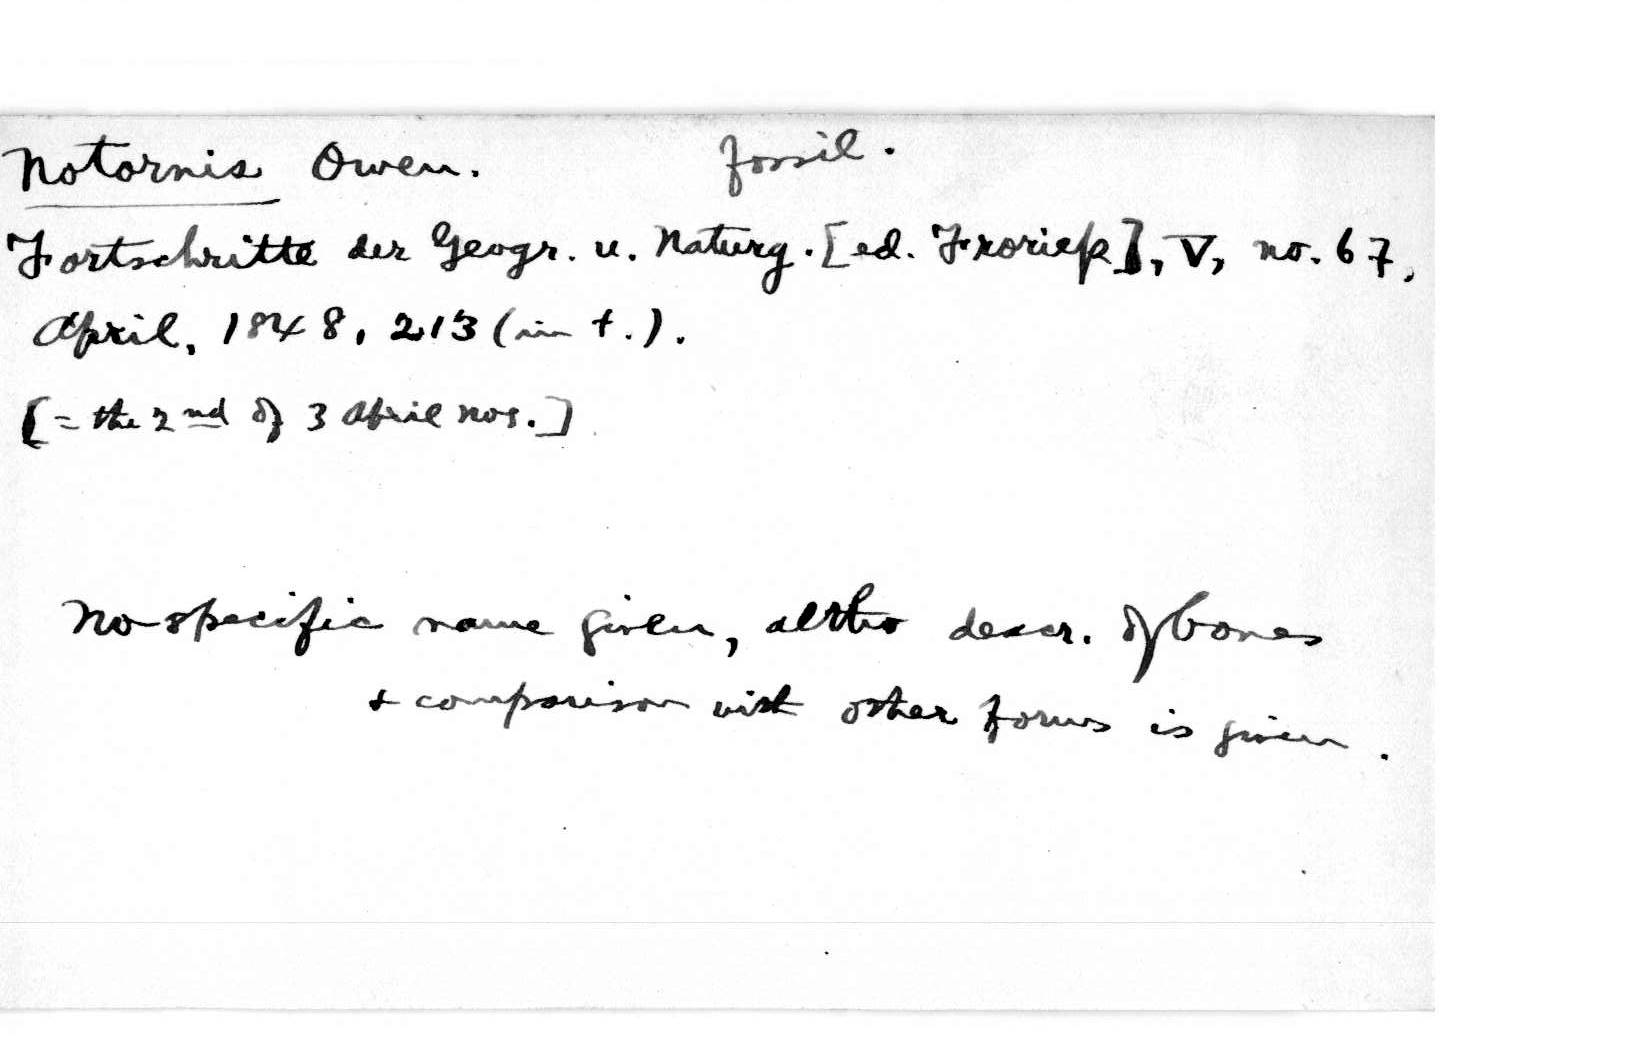 Notornis Owen. fossil.
Fortschritte der Geogr. u. Naturg. [ed. Froriep], V, no. 67,
April, 1848, 213 (in t.).
[= the 2nd of 3 April nos.]
No specific name given, altho descr. of bones
+ comparison with other forms is given.